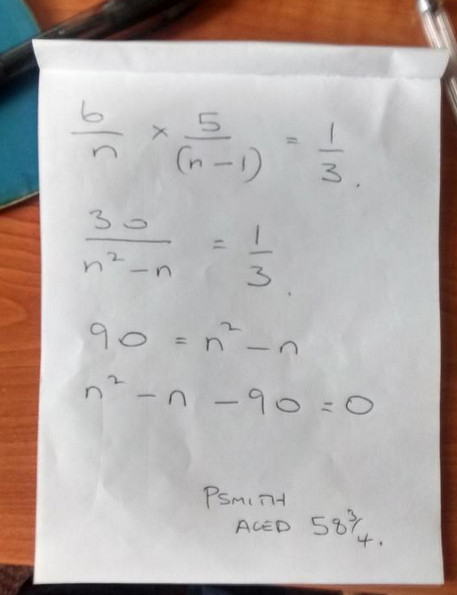 6/n × 5/(n-1) = 1/3.
30/n²-n = 1/3.
90 = n²-n
n²-n-90=0
PSMITH
AGED 58 3/4.